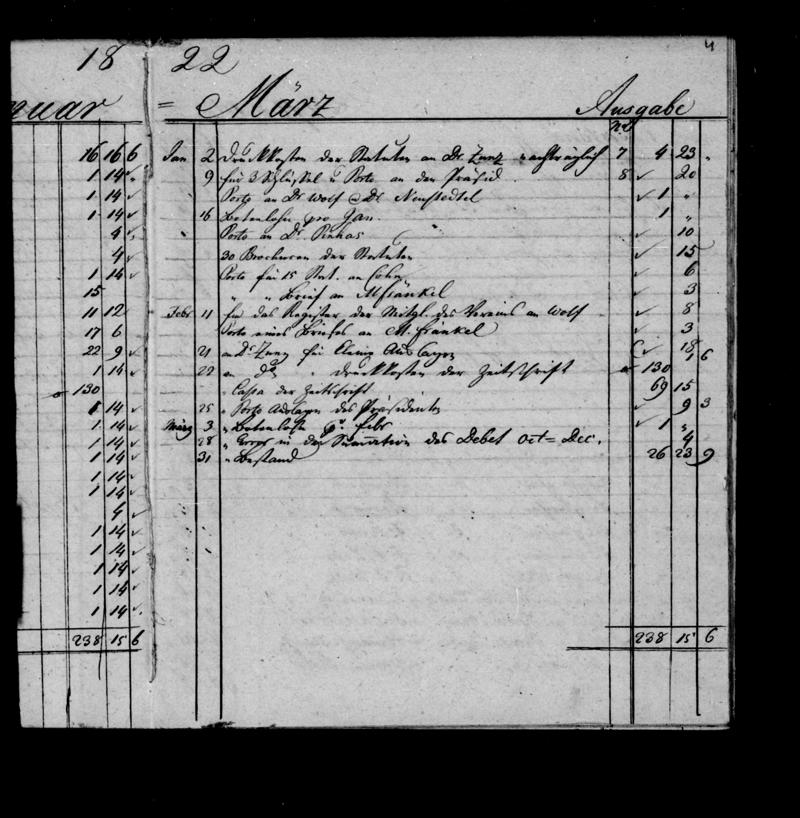 4
18 22
nuar = März Ausgabe
No
16 16 6
1 14 "
1 14 ✓
1 14 ✓
4 ✓
4 ✓
1 14 ✓
15
11 12
17 6
22 9 ✓
1 14 ✓
130
1 14 ✓
1 14 ✓
1 14 ✓
1 14 ✓
1 14 ✓
1 14 ✓
4 ✓
1 14 ✓
1 14 ✓
1 14 ✓
1 14 ✓
1 14 ✓
238 15 6
Jan 2 Druckkosten der Statuten an Dr Zunz nachträglich 7 4 23 "
9 für 3 Schlüssel u Porto an den Präsid. 8 ✓ 20
Porto an Dr Wolf & Dr Neustedtel ✓ 1 "
16 Botenlohn pro Jan. 1 "
Porto an Dr Pinhas ✓ 10
30 Brochuren der Statuten ✓ 15
Porto für 15 Stat. an Cohn ✓ 6
" " Brief an M Fränkel ✓ 3
Febr 11 für das Register der Mitgl. des Vereins an Wolf ✓ 8
Porto eines Briefes an M. Frankel ✓ 3
21 an Dr Zunz für kleine Auslagen ✓ 18 6
22 an do " Druckkosten der Zeitschrift 130 1
" Cassa der Zeitschrift 69 15
25 " Porto Auslagen des Präsidenten ✓ 9 3
März 3 " Botenlohn pr Febr ✓ 1 "
28 " Error in der Summation des Debet Oct = Dec. 4
31 " Bestand 26 23 9
238 15 6